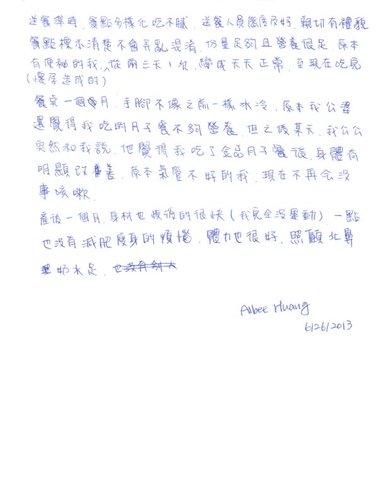 送餐準時，餐點多樣化吃不膩，送餐人員態度友好 親切有禮貌
餐點標示清楚不會弄亂混淆，份量足夠且營養很足，原本
有便秘的我，從兩三天1次，降成天天正常，至現在吃完
(懷孕造成的)
餐點一個月，手腳不像之前一樣冰冷，原本我公婆
還覺得我吃的月子餐不夠營養，但之後某天，我公公
突然和我說，他覺得我吃了金品月子餐後，身體有
明顯改善，原本氣管不好的我，現在不再會沒
事咳嗽．
產後一個月 身材也恢復的很快(我完全沒運動) 一點
也沒有減肥瘦身的煩惱，體力也很好，照顧北鼻
奶水足．
Albee Huang
6/26/2013